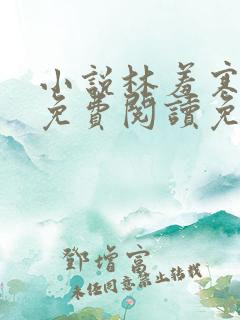 小說林羞寒
免費閱讀免
鄧增富
未经同意禁止转载